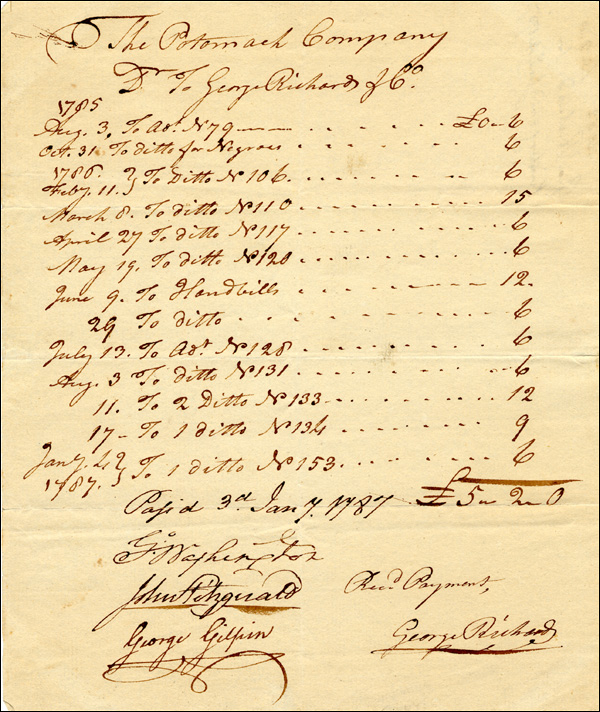 The Potomack Company
Dr To George Richards & Co.
1785
Aug. 3. To Adt. N 79 £0 - 6
Oct. 31 To ditto for Negroes 6
1786.
Feby. 11. } To Ditto N 106. 6
March 8. To ditto N 110 15
April 27 To ditto N 117 6
May 19. To ditto N 120 6
June 9. To Handbills 12.
29 To ditto 6
July 13. To Adt. N 128 6
Aug. 3 To ditto N 131 6
11. To 2 Ditto N 133 12
17 - To 1 ditto N 134 9
Jany. 4
1787. } To 1 ditto N 153. 6
Pass'd 3d. Jany. 1787 £ 5 - 2 - 0
Go. Washington
John Fitzgerald Rec'd Payment,
George Gilpin George Richards